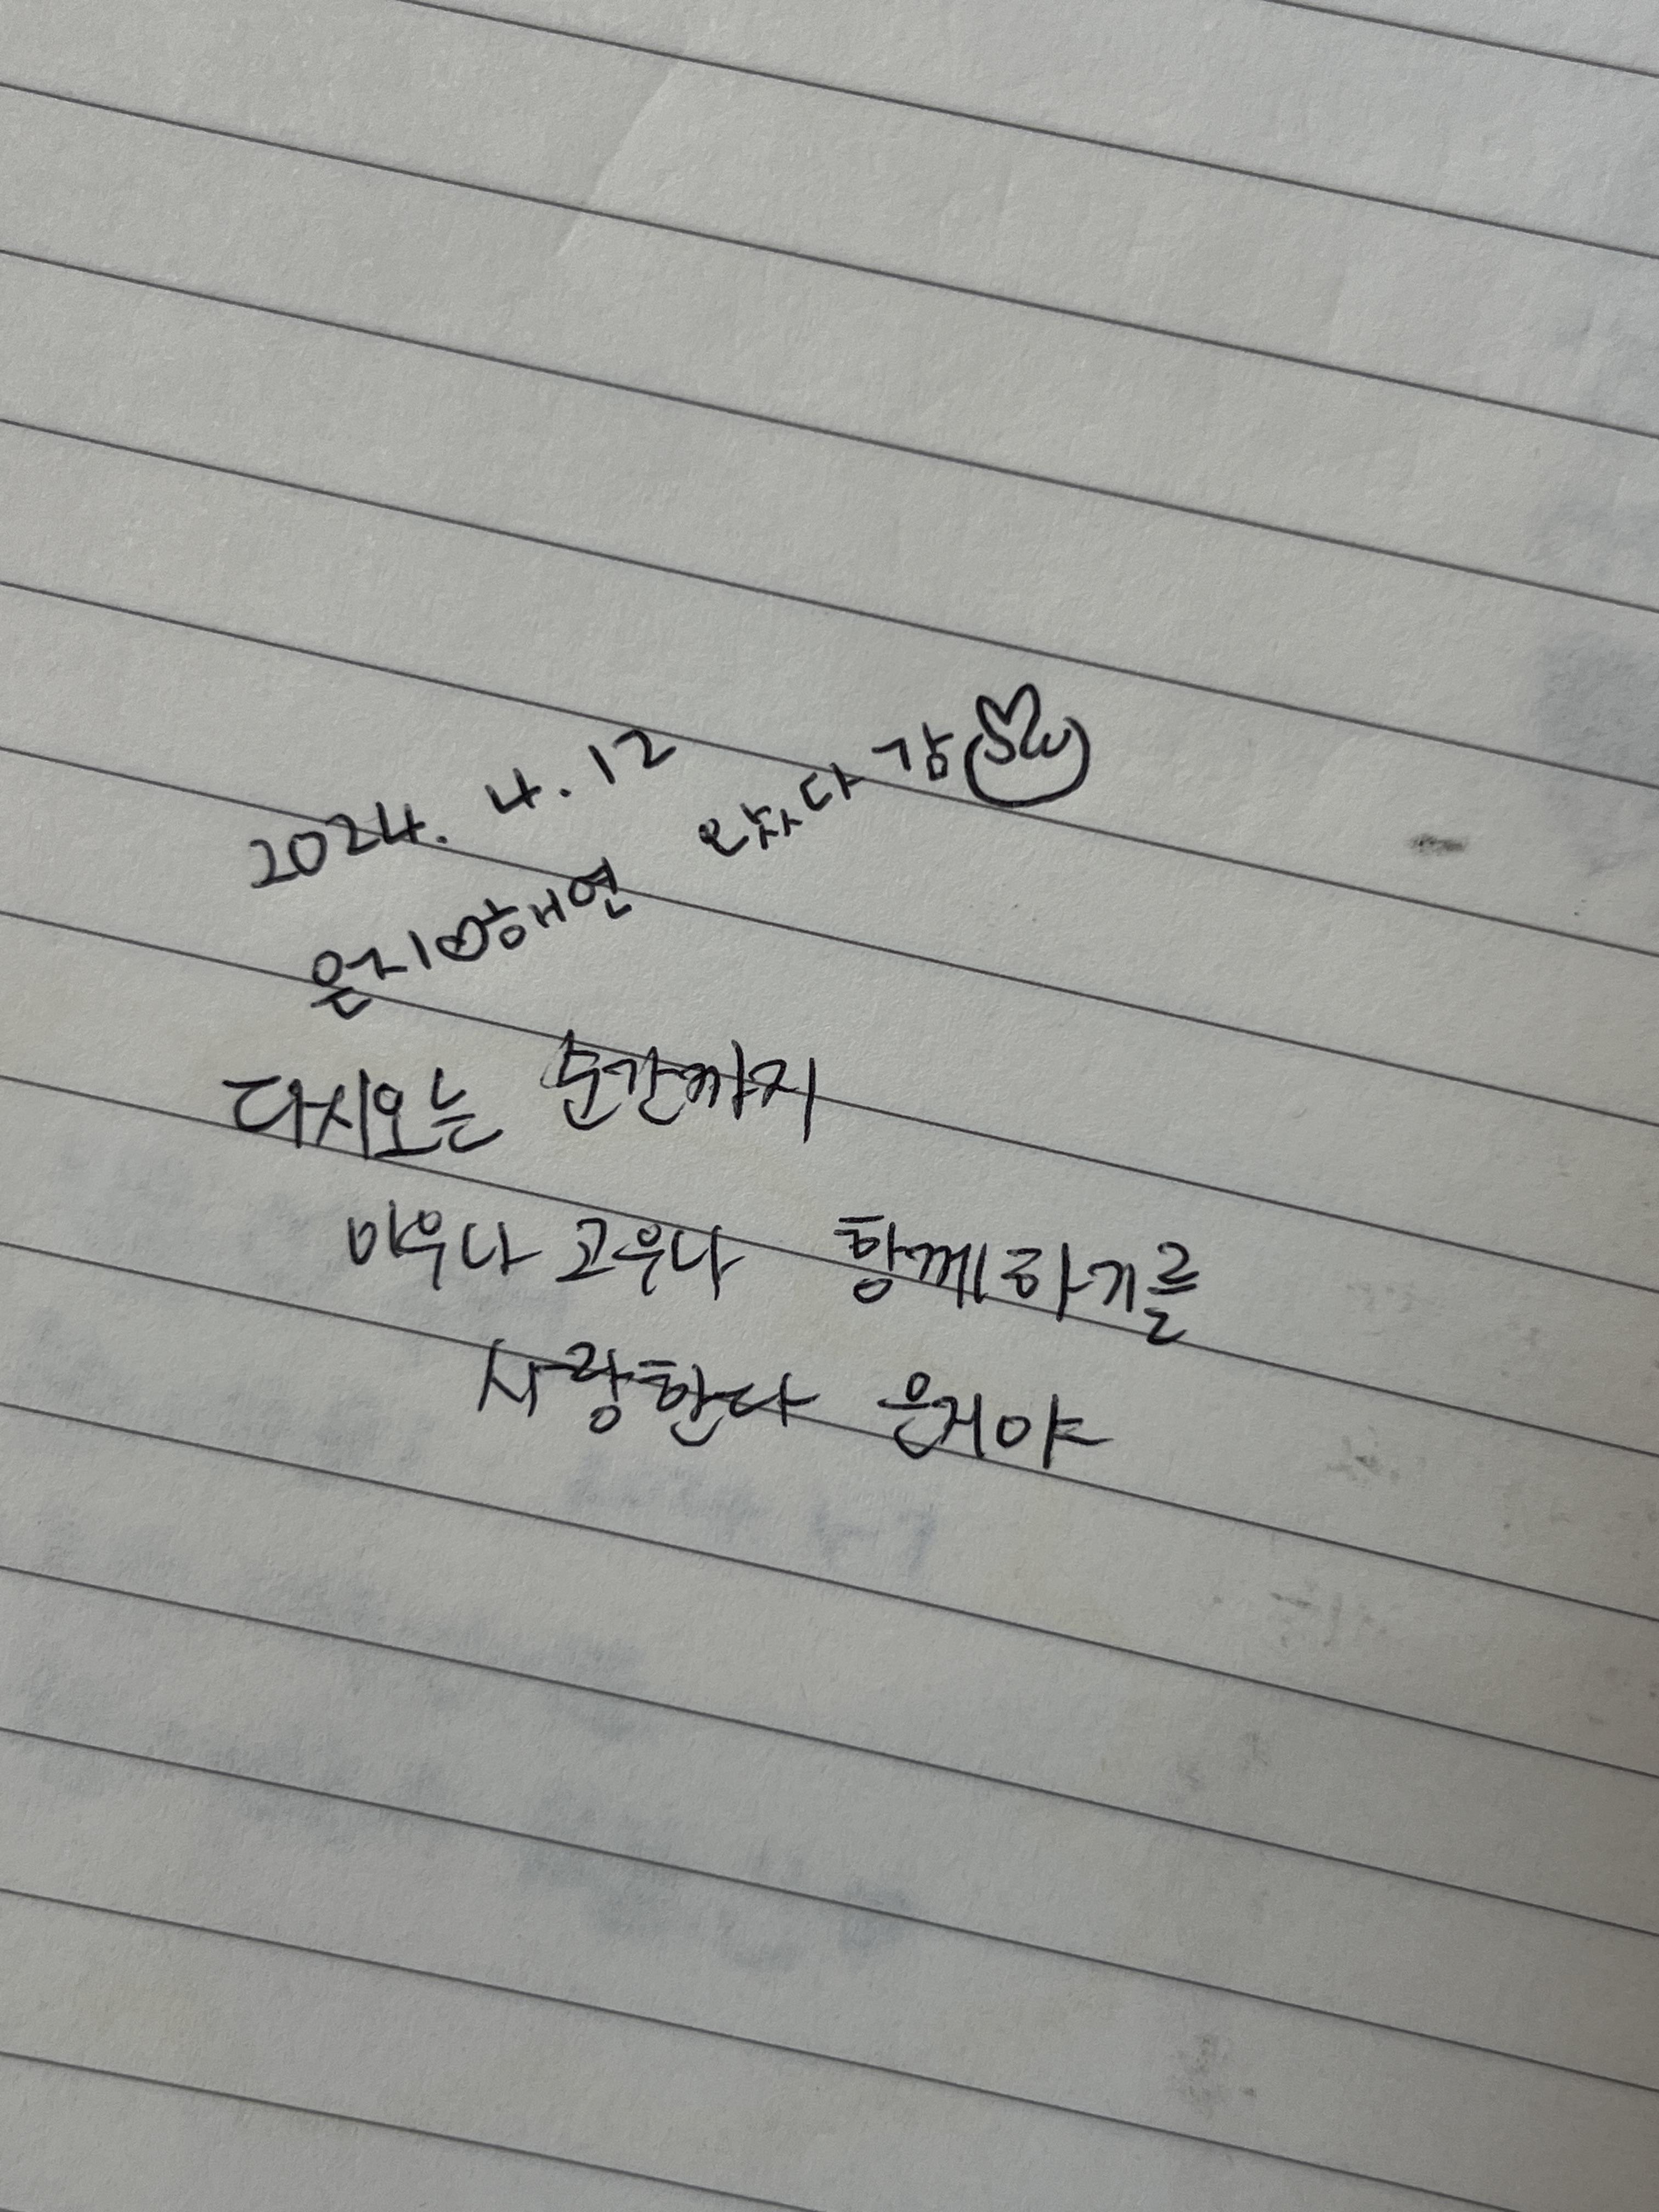 2024. 4. 12
은지♡해연 왔다감
다시오는 순간까지
미우나 고우나 함께하기를
사랑한다 은지야